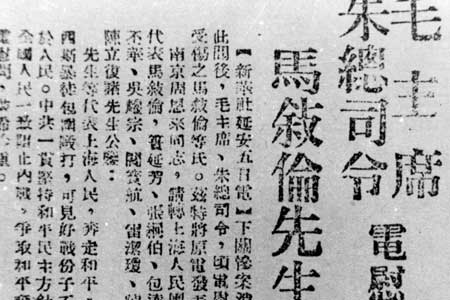 毛主席
朱總司令 電慰
馬敘倫先生
【新華社延安五日電】下關慘案
此間後，毛主席、朱總司令，頃電慰
受傷之馬敘倫等氏。茲特將原電發
南京周恩來同志，請轉上海人民團
代表馬敘倫、簣延芳、張絅伯、包達
丕華、吳耀宗、閻寶航、雷潔瓊、
陳立復諸先生公鑒：
先生等代表上海人民，奔走和平，
西斯暴徒包圍毆打，可見好戰份子不
於人民。中共一貫堅持和平民主方針
全國人民一致阻止內戰，爭取和平
電慰問，